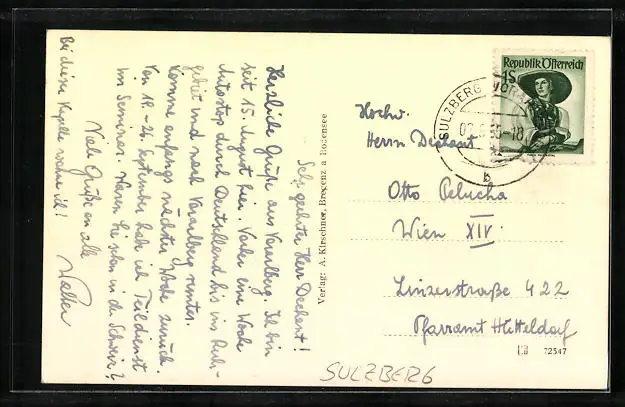 Sehr geehrter Herr Dechant!
Herzliche Grüße aus Vorarlberg. Ich bin
seit 15. August hier. Vorher eine Woche
Autostop durch Deutschland bis ins Ruhr-
gebiet und nach Vorarlberg runter.
Komme anfangs nächster Woche zurück.
Von 19.-24. September hab ich Teildienst
im Seminar. Waren Sie schon in der Schweiz?
Viele Grüße an alle
Walter
Bei dieser Kapelle wohne ich!
Verlag: A. Kirschner, Bregenz a Bodensee
Republik Österreich
1S
SULZBERG
b
Hochw.
Herrn Dechant
Otto Pelucha
Wien XIV
Linzerstraße 422
Pfarramt Hütteldorf
72547
SULZBERG